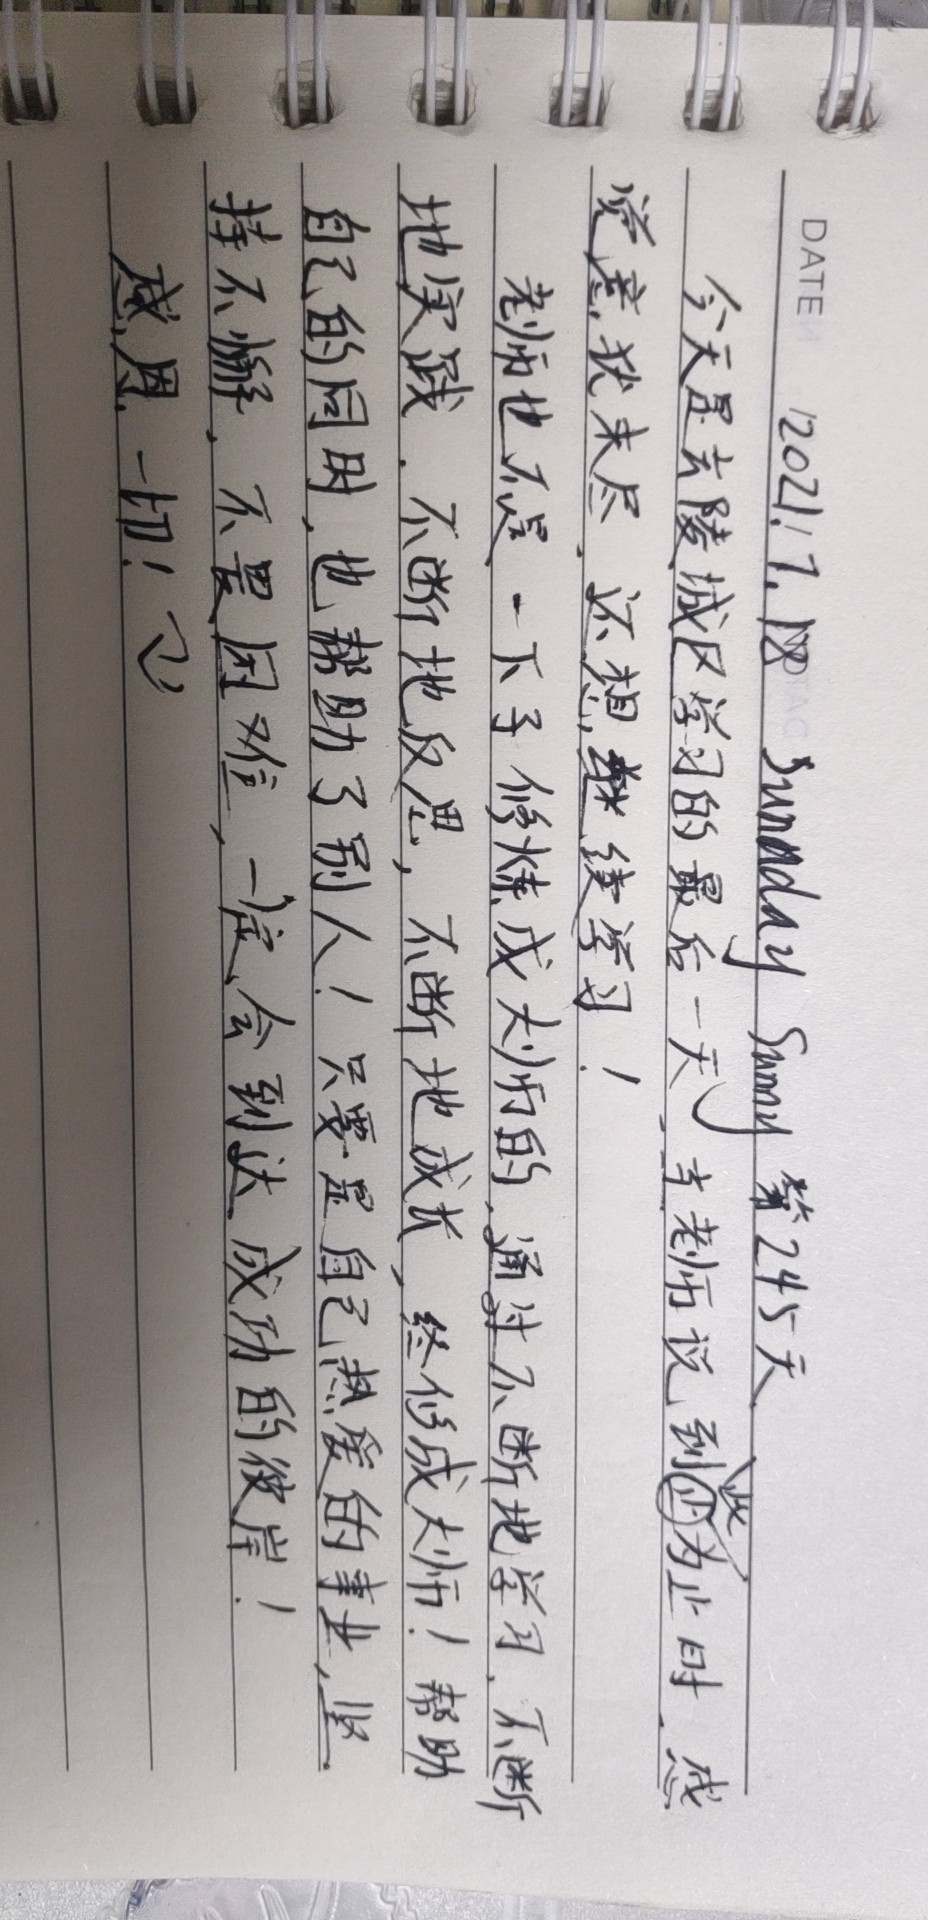 DATE 2021.7.18 Sunday Sunny 第245天
今天是去陵城区学习的最后一天,当老师说到此为止时,感
觉意犹未尽,还想继续学习!
老师也不是一下子修炼成大师的,通过不断地学习,不断
地实践,不断地反思,不断地成长,终修成大师!帮助
自己的同时,也帮助了别人!只要是自己热爱的事业,坚
持不懈,不畏困难,一定会到达成功的彼岸!
感恩一切!